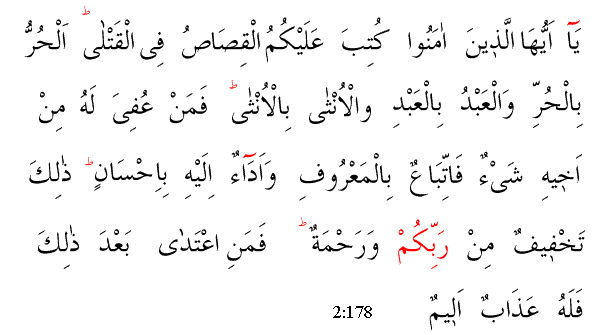 يَٓا اَيُّهَا الَّذ۪ينَ اٰمَنُوا كُتِبَ عَلَيْكُمُ الْقِصَاصُ فِى الْقَتْلٰىۜ اَلْحُرُّ
بِالْحُرِّ وَالْعَبْدُ بِالْعَبْدِ والْاُنْثٰى بِالْاُنْثٰىۜ فَمَنْ عُفِىَ لَهُ مِنْ
اَخ۪يهِ شَىْءٌ فَاتِّبَاعٌ بِالْمَعْرُوفِ وَاَدَٓاءٌ اِلَيْهِ بِاِحْسَانٍۜ ذٰلِكَ
تَخْف۪يفٌ مِنْ رَبِّكُمْ وَرَحْمَةٌۜ فَمَنِ اعْتَدٰى بَعْدَ ذٰلِكَ
فَلَهُ عَذَابٌ اَل۪يمٌ 2:178